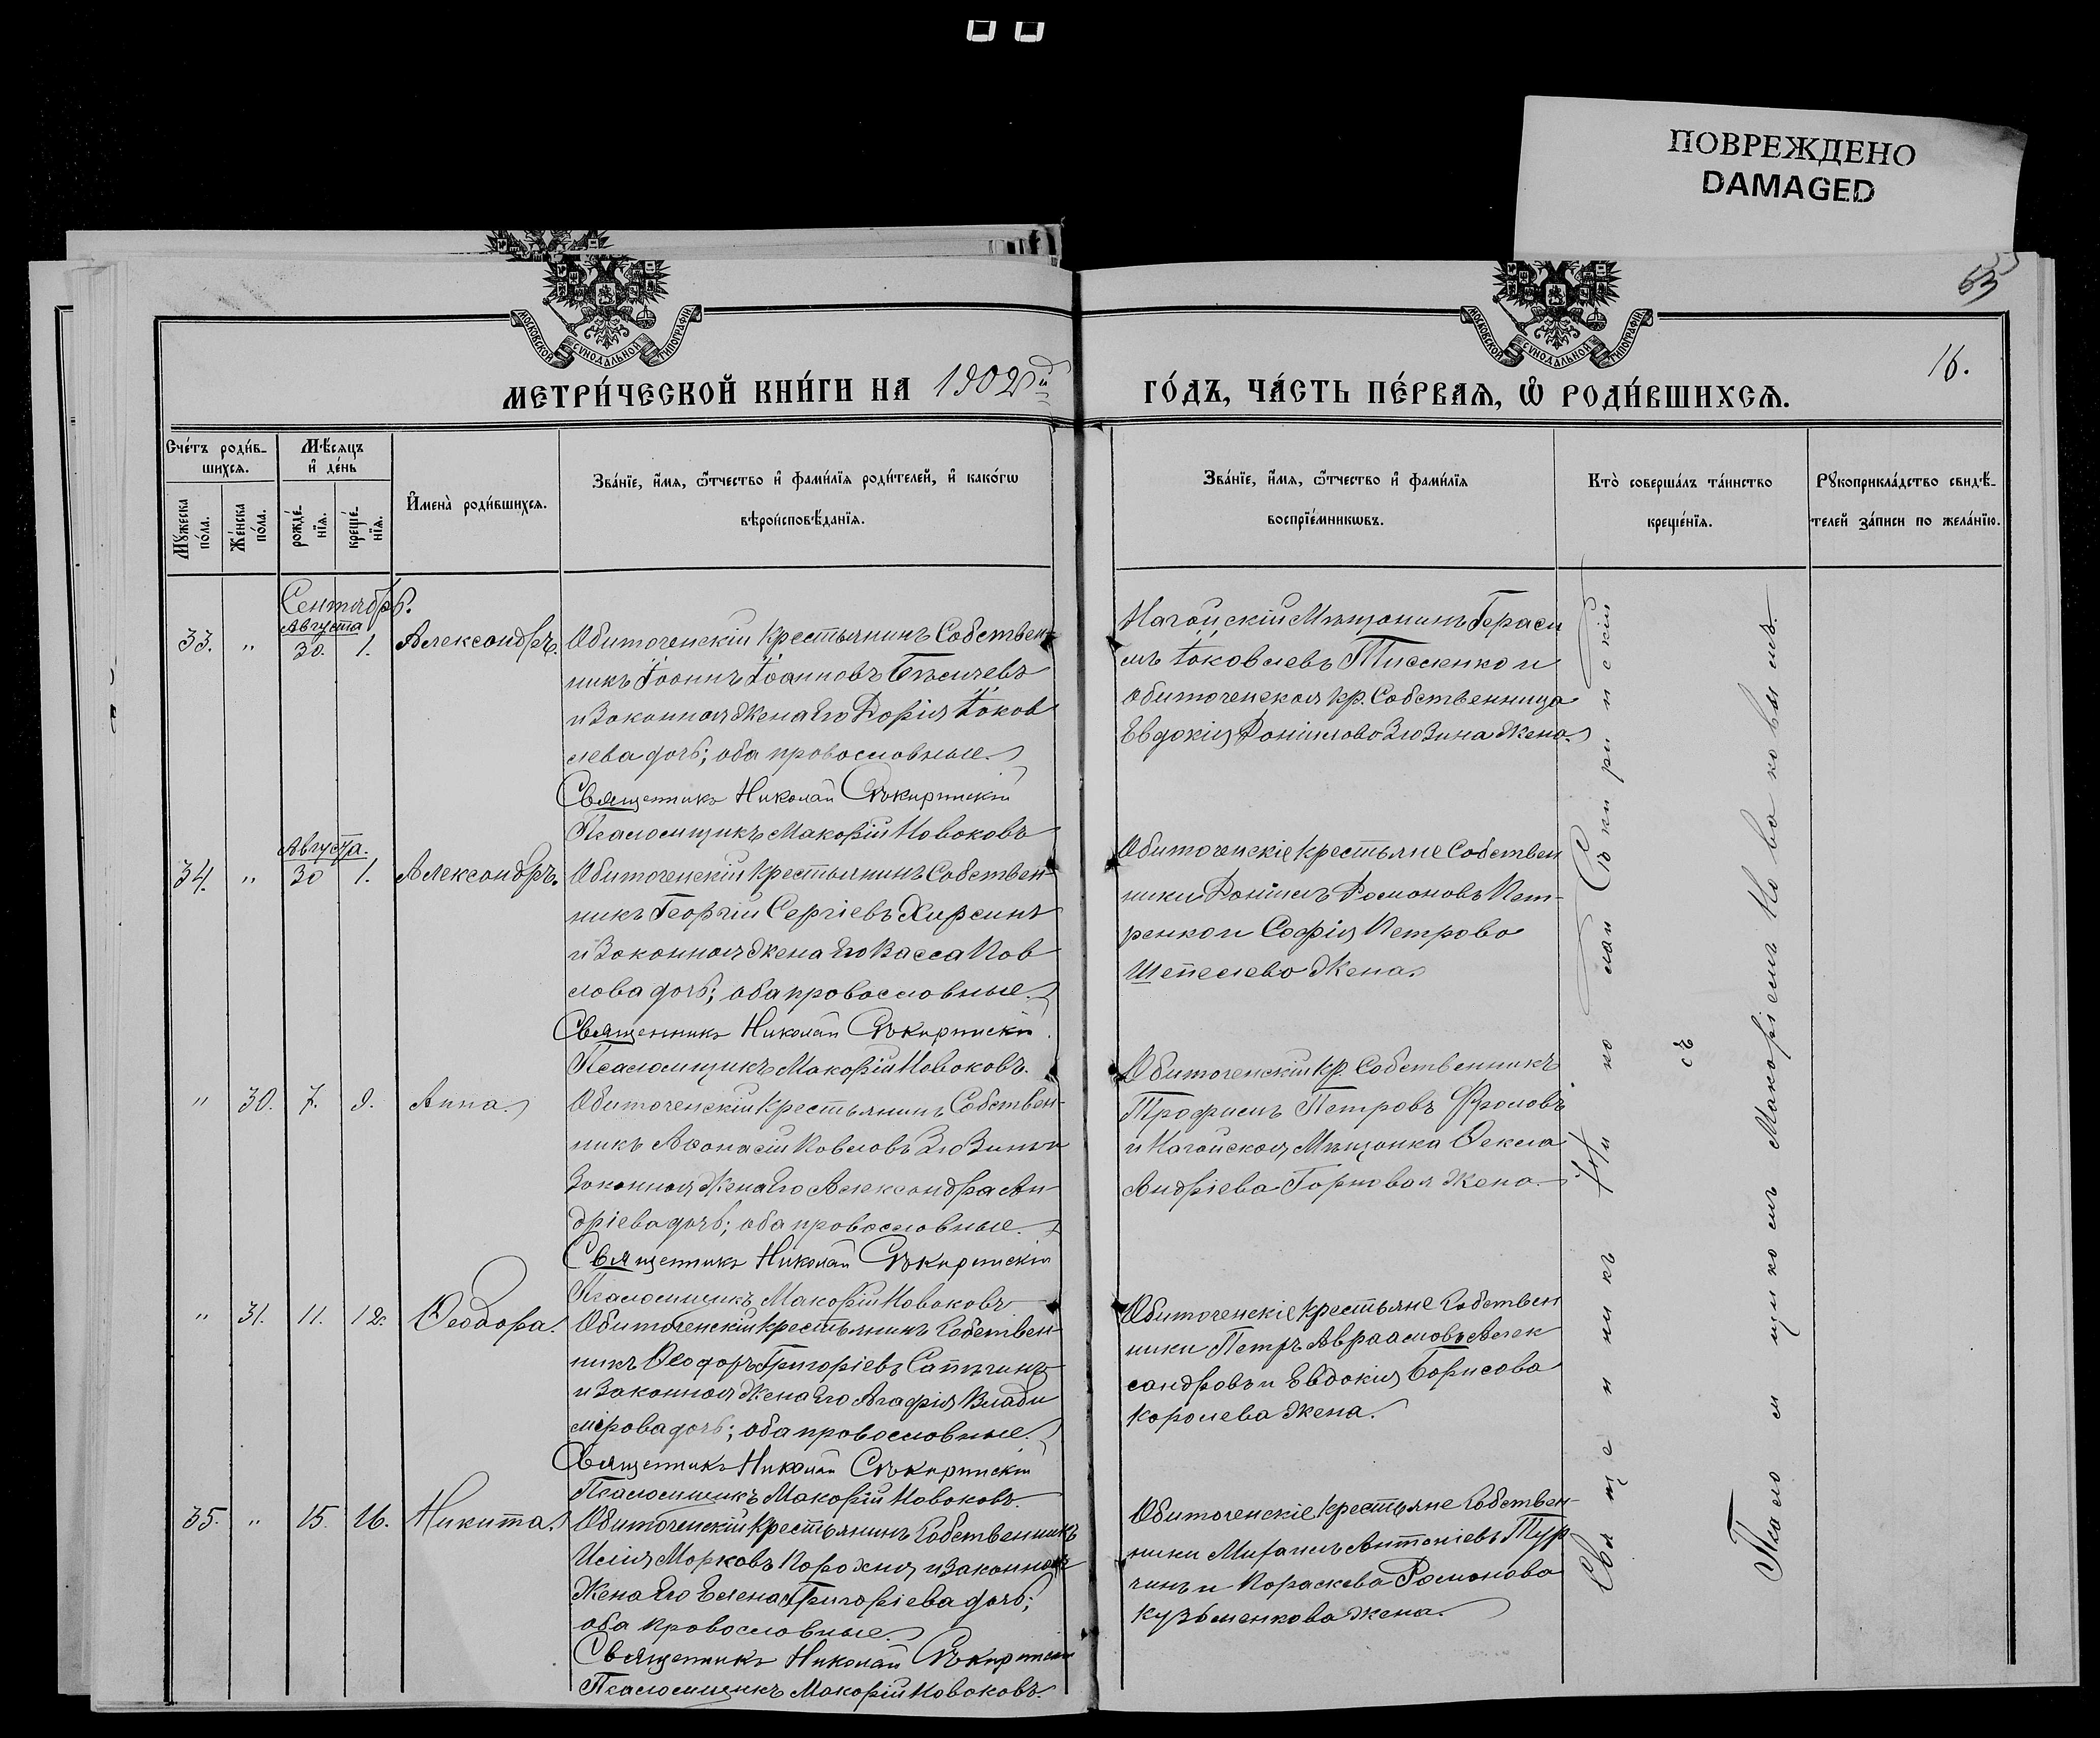 ПОВРЕЖДЕНО
DAMAGED
63
16.
МОСКОВСКОЙ СѴНОДАЛЬНОЙ ТИПОГРАФІИ
МОСКОВСКОЙ СѴНОДАЛЬНОЙ ТИПОГРАФІИ
МЕТРИ́ЧЕСКОЙ КНИ́ГИ НА 1902й
ГО́ДЪ, ЧА́СТЬ ПЕ́РВАЯ, Ѡ РОДИ́ВШИХСЯ.
Сче́тъ роди́в-
шихся.
Мꙋ́жеска по́ла.
Же́нска по́ла.
Мѣ́сяцъ
и де́нь
рожде́-нїя.
креще́-нїя.
Имена̀ роди́вшихся.
Зва́нїе, и́мя, ѻ́тчество и фами́лїя роди́телей, и како́гѡ
вѣроисповѣ́данїя.
Зва́нїе, и́мя, ѻ́тчество и фами́лїя
воспрїе́мникѡвъ.
Кто̀ соверша́лъ та́инство
креще́нїя.
Рꙋкоприкла́дство свидѣ́-
телей за́писи по жела́нїю.
Сентябрь.
Августа
33. " 30. 1. Александръ.
Обиточенскій крестьянинъ Собствен-
никъ Іоаннъ Іоанновъ
и Законная Жена его Софія Іаков
лева дочь; оба православные.
Священникъ Николай Сѣкиринскій
Псаломщикъ Макарій Новаковъ
Ногайскій Мѣщанинъ Гераси
мъ Іаковлевъ Тисленко и
обиточенская кр. Собственница
Евдокія Даніилова Зюзина Жена.
Августа.
34. " 30 1. Александръ.
Обиточенскій Крестьянинъ Собствен-
никъ Георгій Сергіевъ Хирсинъ
и Законная Жена его Васса Пав
лова дочь; оба православные.
Священникъ Николай Сѣкиринскій
Псаломщикъ Макарій Новаковъ.
Обиточенскіе Крестьяне Собствен
ники Даніилъ Романовъ Пет-
ренко и Софія Петрова
Шепелева Жена.
" 30. 7. 9. Анна.
Обиточенскій Крестьянинъ Собствен-
никъ Аѳанасій Павловъ Зюзинъ и
Законная Жена его Александра Ан-
дріева дочь; оба православные.
Священникъ Николай Сѣкиринскій
Псаломщикъ Макарій Новаковъ
Обиточенскій Кр. Собственникъ
Трофимъ Петровъ Фроловъ
и Ногайская Мѣщанка Ѳекла
Андріева Горповая Жена.
" 31. 11. 12. Ѳеодора.
Обиточенскій Крестьянинъ Собствен-
никъ Ѳеодоръ Григоріевъ Сапѣгинъ
и Законная Жена его Агафія Влади
мірова дочь; оба православные.
Священникъ Николай Сѣкиринскій
Псаломщикъ Макарій Новаковъ.
Обиточенскіе Крестьяне Собствен
ники Петръ Авраамовъ Алек
сандровъ и Евдокія Борисова
Королева Жена.
35. " 15. 16. Никита.
Обиточенскій Крестьянинъ Собственникъ
Илія Марковъ Порохня и Законная
Жена его Елена Григоріева дочь;
оба православные.
Священникъ Николай Сѣкиринскій
Псаломщикъ Макарій Новаковъ.
Обиточенскіе Крестьяне Собствен-
ники Михаилъ Антоніевъ Тур
чинъ и Параскева Романова
Кузьменкова Жена.
Священникъ Николай Сѣкиринскій
съ
Псаломщикомъ Макаріемъ Новаковымъ.